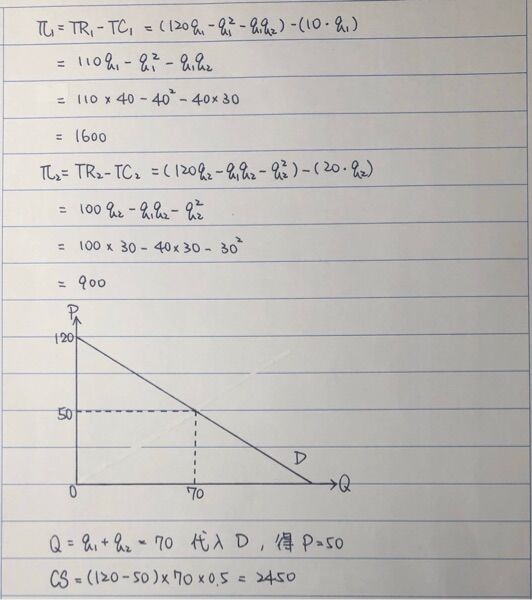 π₁ = TR₁ - TC₁ = (120q₁ - q₁² - q₁q₂) - (10 · q₁)
= 110q₁ - q₁² - q₁q₂
= 110 × 40 - 40² - 40 × 30
= 1600
π₂ = TR₂ - TC₂ = (120q₂ - q₁q₂ - q₂²) - (20 · q₂)
= 100q₂ - q₁q₂ - q₂²
= 100 × 30 - 40 × 30 - 30²
= 900
P
120
50
D
0
70
Q
Q = q₁ + q₂ = 70 代入 D , 得 P = 50
CS = (120 - 50) × 70 × 0.5 = 2450